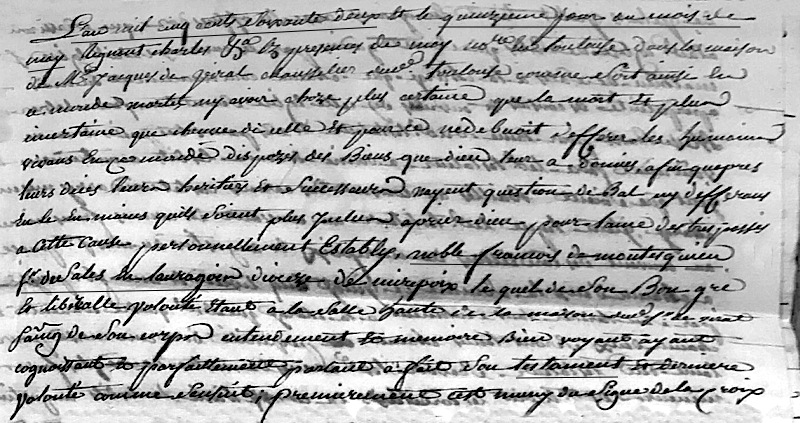 L'an mil cinq cents soixante deux et le quinzieme jour du mois de
may Regnant charles &ca Ez presences de moy no.re en toulouse dans la maison
de Mr Jacques de chausselier toulouse comme soit ainsi en
ce monde mortel ny avoir choze plus certaine que la mort et plus
incertaine que d'icelle et pour ce ne deburoit les humains
vivans En ce monde dispozer des Biens que dieu leur a donnes, afin qu'apres
leurs deces leurs heritiers et successeurs nayent question de Bat ny
du moins quils soient plus a prier dieu pour l'ame des trepasses
a cette Cause personnellement Estably, noble francois de montesquieu
sr. de Sales En lauragois dioceze de mirepoix le quel de son Bon gré
et liberalle volonté Etant a la salle haute de la maison
de son corps entendement et memoire Bien voyant ayant
cognoissant et parfaittement parlant a fait son testament et derniere
volonté comme s'ensuit; premierement cest muny du signe de la Croix